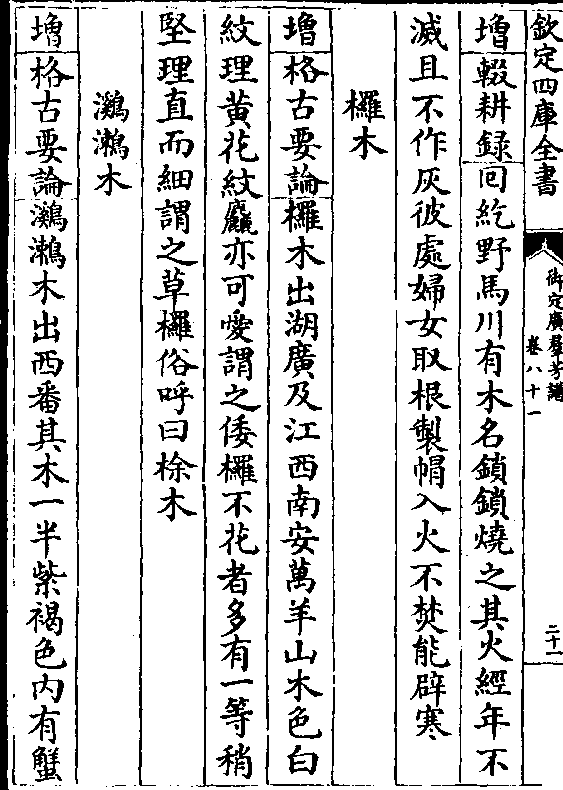 欽定四庫全書
御定廣羣芳譜
卷八十一
二十一
增輟耕録回紇野馬川有木名鎖鎖燒之其火經年不
滅且不作灰彼處婦女取根製帽入火不焚能辟寒
欏木
增格古要論欏木出湖廣及江西南安萬羊山木色白
紋理黃花紋麤亦可愛謂之倭欏不花者多有一等稍
堅理直而細謂之草欏俗呼曰梌木
鸂鶒木
增格古要論鸂鶒木出西番其木一半紫褐色内有蟹